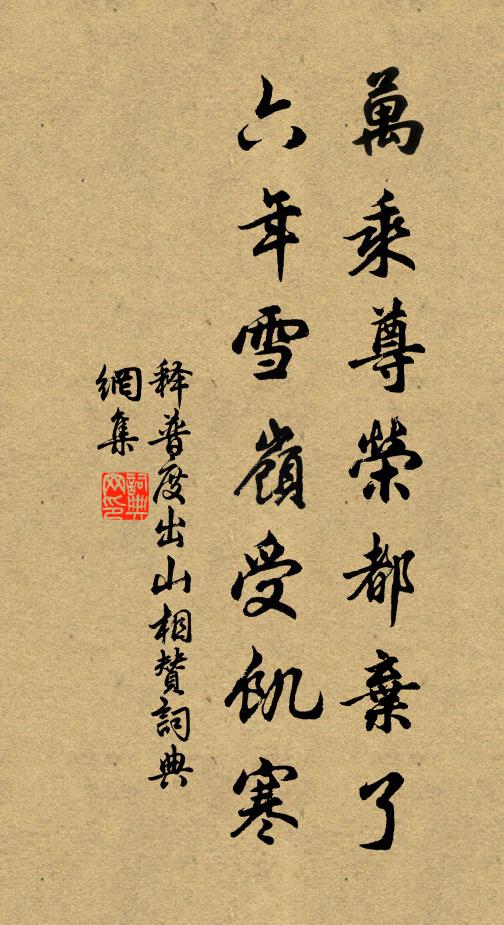 萬乘尊榮都棄了
六年雪嶺受飢寒
释普度出山相赞詞典
網集
詞典
网印